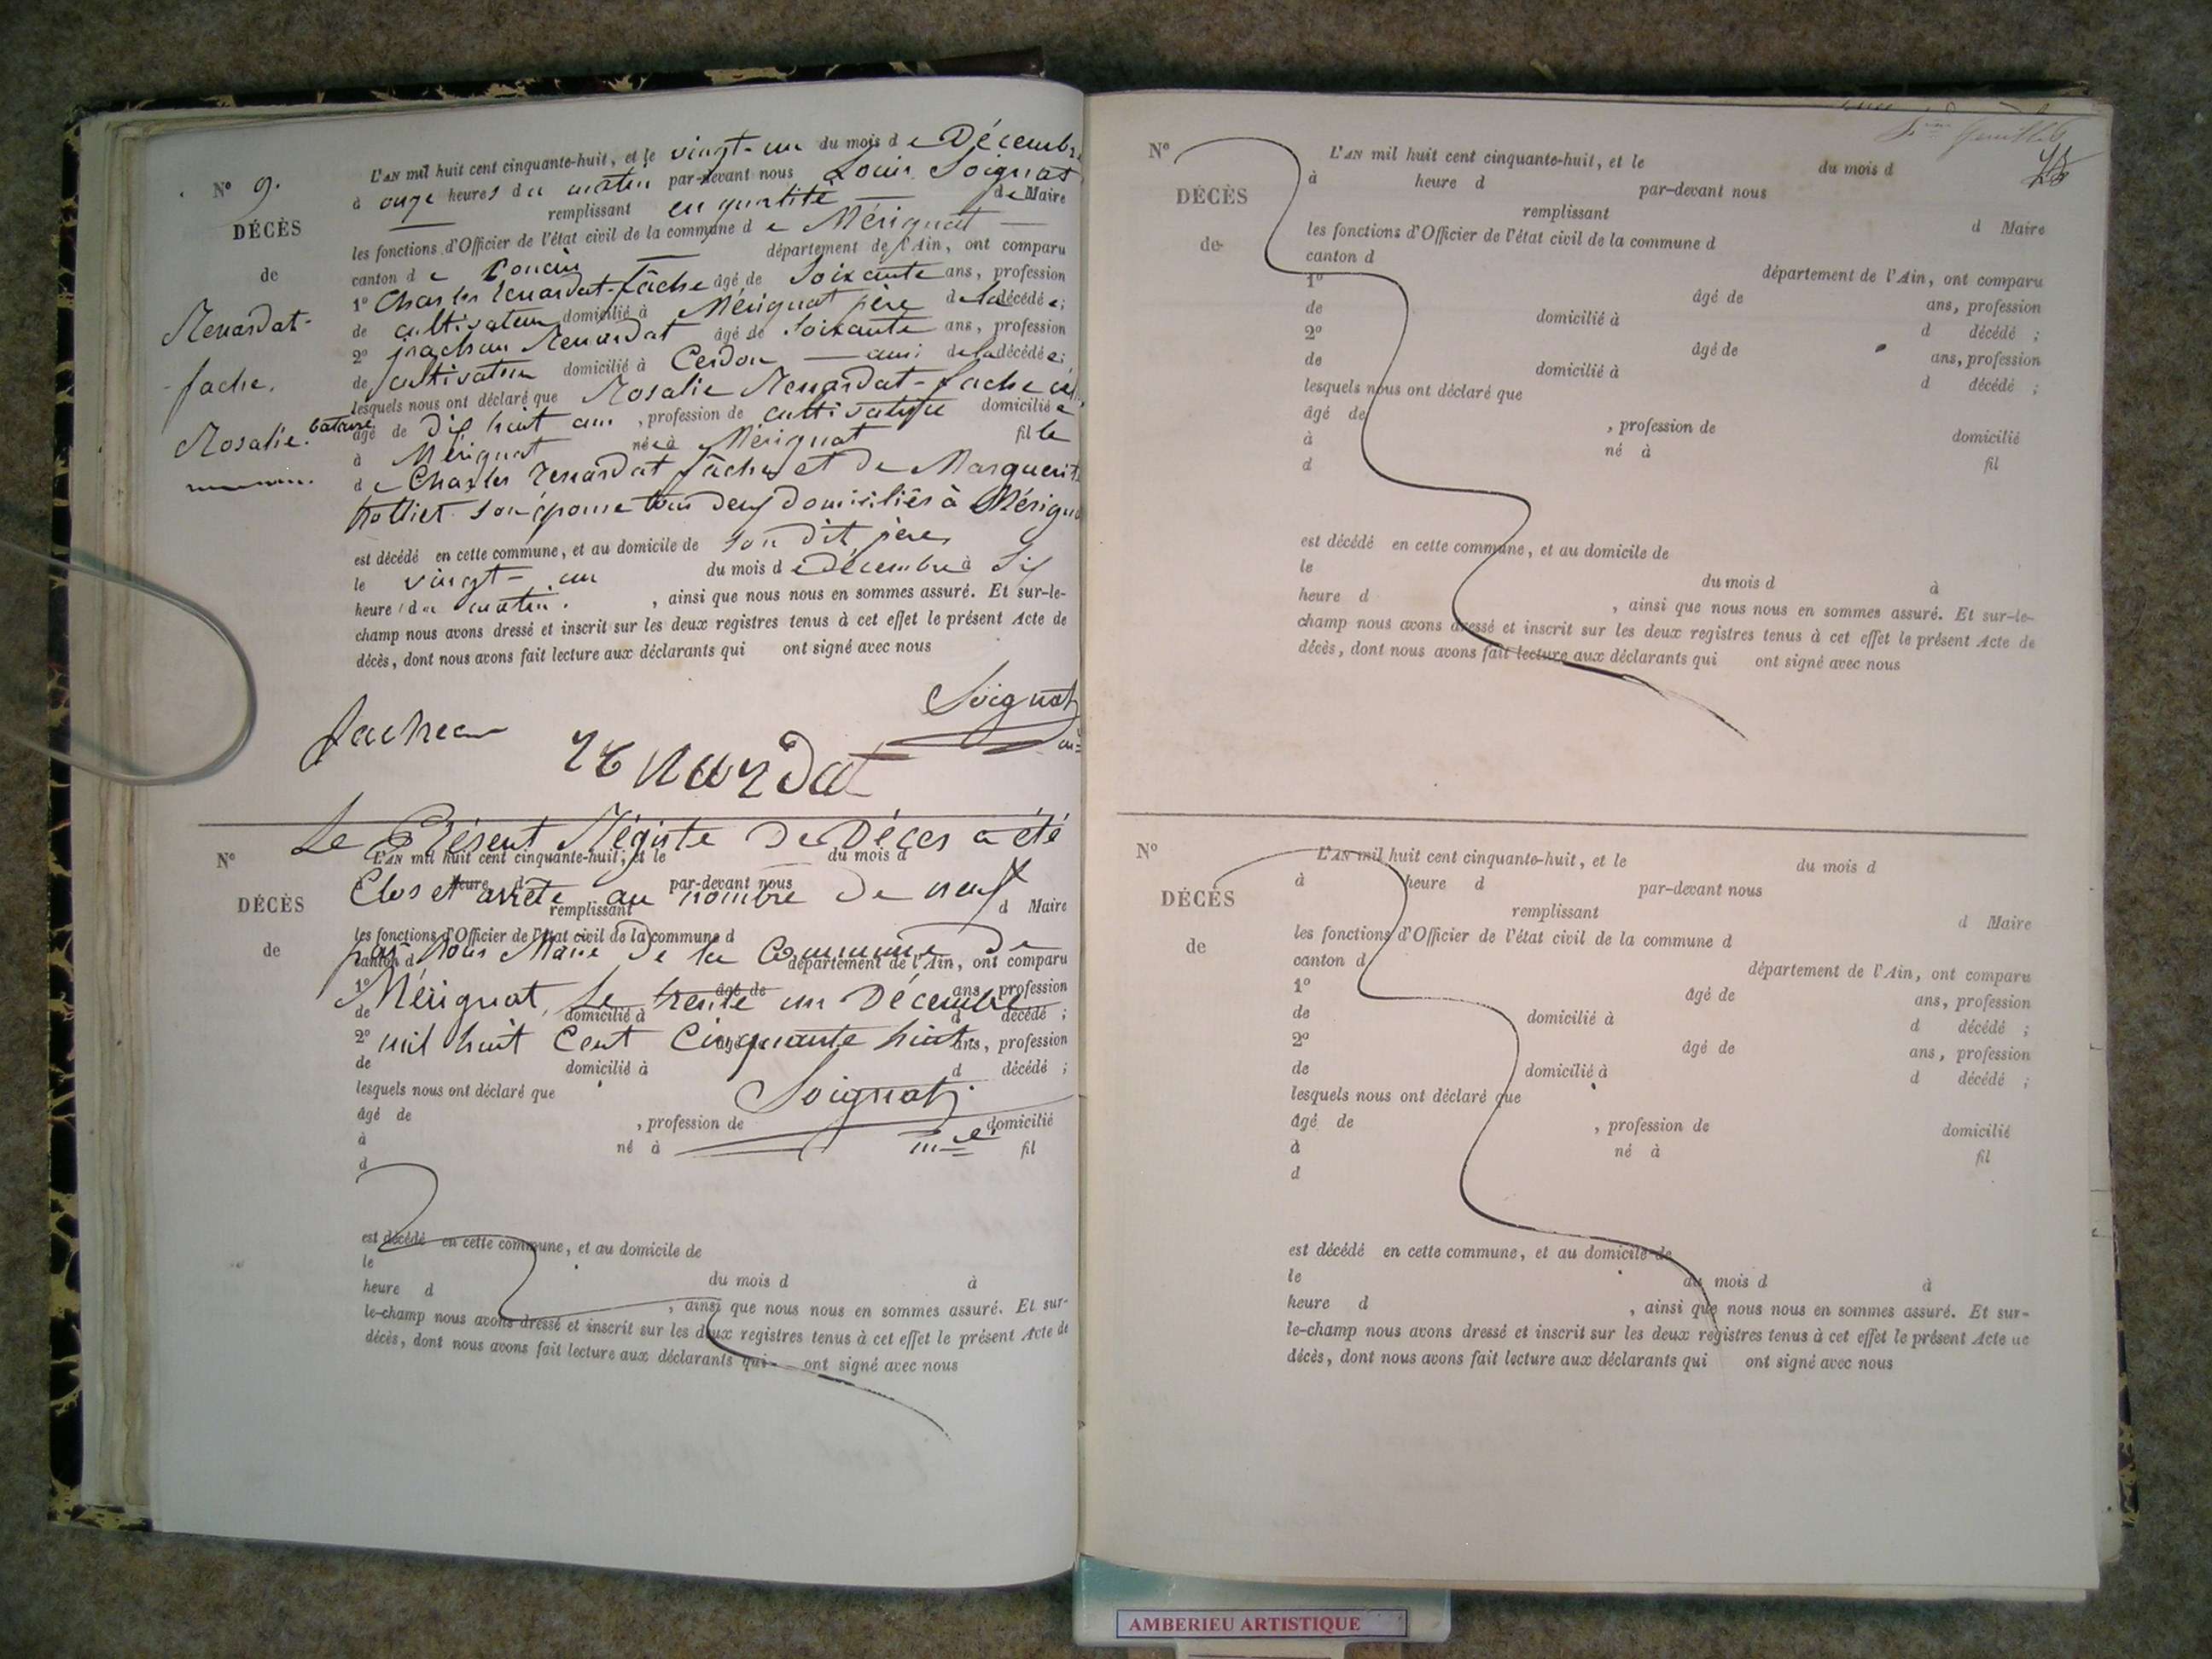 N° 9.
DÉCÈS
de
Renardat-
fache.
Rosalie.
L'AN mil huit cent cinquante-huit, et le vingt-un du mois de Décembre
à onze heures du matin par-devant nous Louis Soignat
remplissant en qualité de Maire
les fonctions d'Officier de l'état civil de la commune de Mérignat
canton de Poncin département de l'Ain, ont comparu
1° Charles Renardat-fâche âgé de Soixante ans, profession
de cultivateur domicilié à Mérignat père de la décédée;
2° Renardat âgé de Soixante ans, profession
de cultivateur domicilié à Cerdon ami de la décédée;
lesquels nous ont déclaré que Rosalie Renardat-fache
âgé de dix huit ans, profession de cultivatrice domiciliée
à Mérignat née à Mérignat fille
de Charles Renardat fâche et de Marguerite
son épouse tous deux domiciliés à Mérignat
est décédé en cette commune, et au domicile de son dit père
le vingt-un du mois de Décembre à Six
heures du matin. , ainsi que nous nous en sommes assuré. Et sur-le-
champ nous avons dressé et inscrit sur les deux registres tenus à cet effet le présent Acte de
décès, dont nous avons fait lecture aux déclarants qui ont signé avec nous
Soignat
renardat
Le Présent Régistre De Décès a été
Clos et arrêté au nombre de neuf
par Nous Maire De la Commune De
Mérignat, Le trente un Décembre
mil huit Cent Cinquante huit.
Soignat
N°
DÉCÈS
de
L'AN mil huit cent cinquante-huit, et le du mois d
heure d par-devant nous
remplissant d Maire
les fonctions d'Officier de l'état civil de la commune d
canton d département de l'Ain, ont comparu
1° âgé de ans, profession
de domicilié à d décédé ;
2° âgé de ans, profession
de domicilié à d décédé ;
lesquels nous ont déclaré que
âgé de , profession de domicilié
à né à fil
d
est décédé en cette commune, et au domicile de
le du mois d à
heure d , ainsi que nous nous en sommes assuré. Et sur-
le-champ nous avons dressé et inscrit sur les deux registres tenus à cet effet le présent Acte de
décès, dont nous avons fait lecture aux déclarants qui ont signé avec nous
N°
DÉCÈS
de
L'AN mil huit cent cinquante-huit, et le du mois d
à heure d par-devant nous
remplissant d Maire
les fonctions d'Officier de l'état civil de la commune d
canton d département de l'Ain, ont comparu
1° âgé de ans, profession
de domicilié à d décédé ;
2° âgé de ans, profession
de domicilié à d décédé ;
lesquels nous ont déclaré que
âgé de , profession de domicilié
à né à fil
d
est décédé en cette commune, et au domicile de
le du mois d à
heure d , ainsi que nous nous en sommes assuré. Et sur-le-
champ nous avons dressé et inscrit sur les deux registres tenus à cet effet le présent Acte de
décès, dont nous avons fait lecture aux déclarants qui ont signé avec nous
N°
DÉCÈS
de
L'AN mil huit cent cinquante-huit, et le du mois d
à heure d par-devant nous
remplissant d Maire
les fonctions d'Officier de l'état civil de la commune d
canton d département de l'Ain, ont comparu
1° âgé de ans, profession
de domicilié à d décédé ;
2° âgé de ans, profession
de domicilié à d décédé ;
lesquels nous ont déclaré que
âgé de , profession de domicilié
à né à fil
d
est décédé en cette commune, et au domicile de
le du mois d à
heure d , ainsi que nous nous en sommes assuré. Et sur-
le-champ nous avons dressé et inscrit sur les deux registres tenus à cet effet le présent Acte de
décès, dont nous avons fait lecture aux déclarants qui ont signé avec nous
AMBERIEU ARTISTIQUE